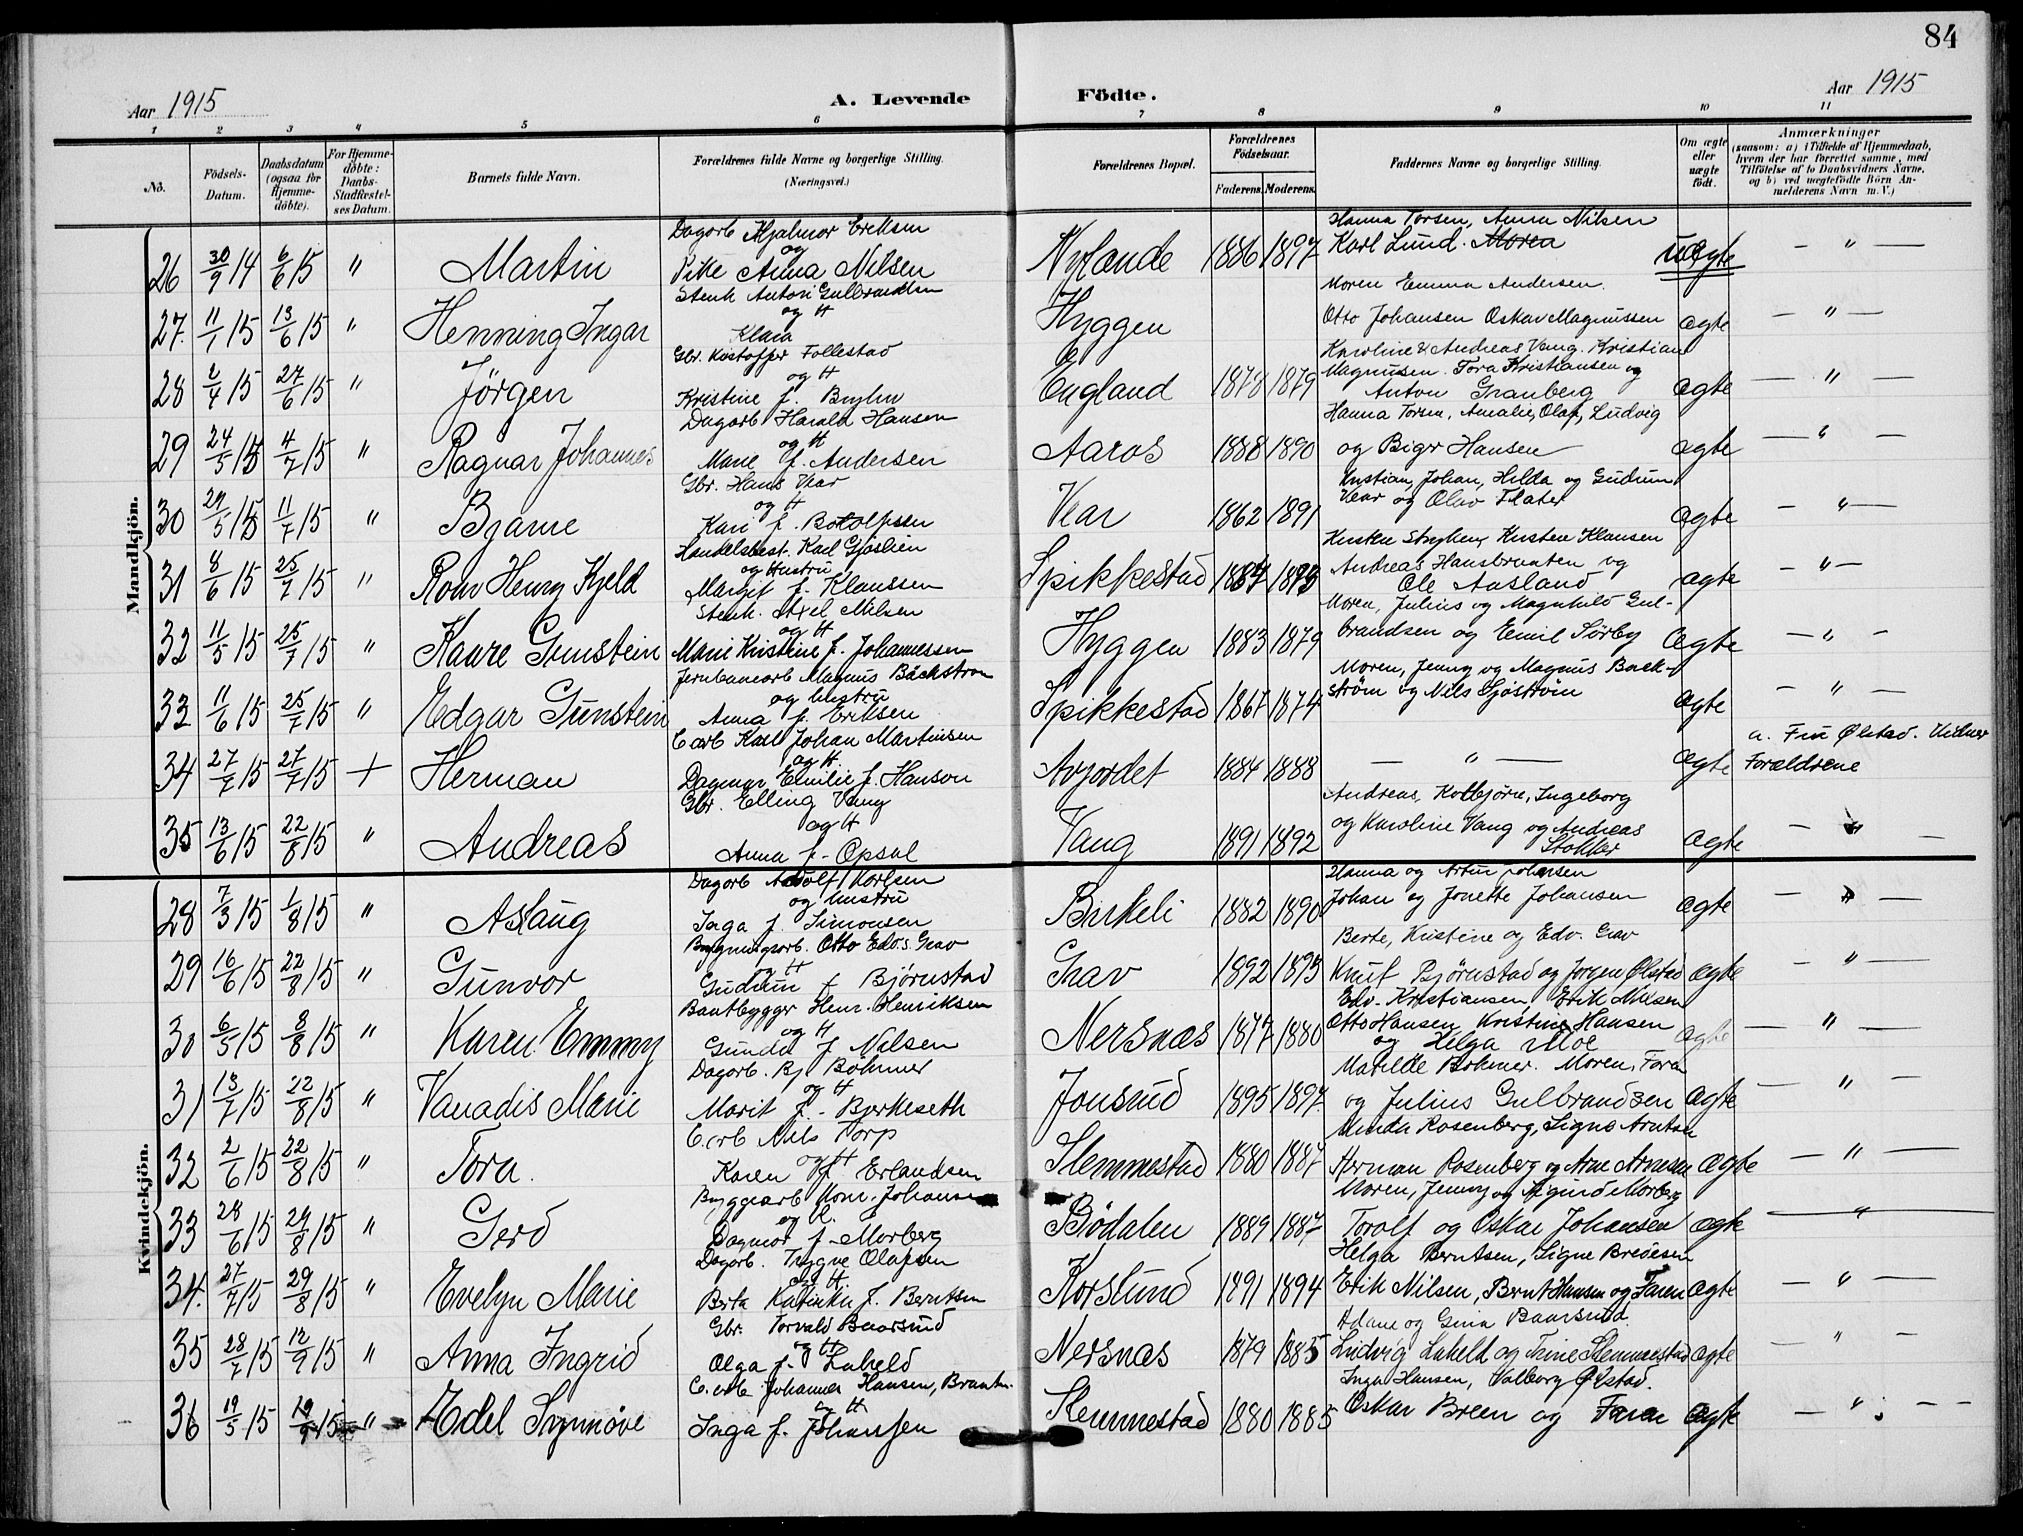 84
Aar 1915
A. Levende Födte.
Aar 1915
1 2 3 4 5 6 7 8 9 10 11
No.
Födsels-Datum.
Daabsdatum (ogsaa for Hjemme-döbte).
For Hjemme-döbte: Daabs-Stadfæstel-ses Datum.
Barnets fulde Navn.
Forældrenes fulde Navne og borgerlige Stilling.
(Næringsvei.)
Forældrenes Bopæl.
Forældrenes Födselsaar.
Faderens. Moderens.
Faddernes Navne og borgerlige Stilling.
Om ægte eller uægte födt.
Anmærkninger
(saasom: a) i Tilfælde af Hjemmedaab, hvem der har forrettet samme, med Tilföielse af to Daabsvidners Navne, og b) ved uægtefödte Börn An-melderens Navn m. V.)
Mandkjön.
Dagarb Hjalmar Eriksen Hanna Torsen, Anna Nilsen
26 30/9 14 6/6 15 " Martin og Pike Anna Nilsen Nylande 1886 1897 Karl Lund. Moren uægte — " —
Stenh Anton Gulbrandsen Moren Emma Andersen.
27. 11/1 15 13/6 15 " Henning Ingar og H Klara Hyggen Otto Johansen Oskar Magnussen ægte — " —
Gbr. Kristoffer Follestad Karoline & Andreas Vang. Kristian
28 2/4 15 27/6 15 " Jørgen og H Kristine f. England 1878 1879 Magnusen. Tora Kristiansen og Anton Granberg ægte — " —
Dagarb Harald Hansen Hanna Torsen, Amalie, Olaf, Ludvig
29 24/5 15 4/7 15 " Ragnar Johannes og H Marie f. Andersen Aaros 1888 1890 og Biger Hansen ægte — " —
Gbr. Hans Vear Kristian, Johan, Hilda og Gudrun
30 29/5 15 11/7 15 " Bjarne og H Kari f. Botolfssen Vear 1862 1891 Vear og Olav Flater ægte — " —
Handelsbest. Karl Gjøslien Kirsten Klausen
31 8/6 15 25/7 15 " Roar Henry Kjeld og Hustru Margit f. Klaussen Spikkestad 1887 1893 Andreas Hansbraaten og Ole Aasland ægte — " —
Stenh. Axel Nilsen Moren, Julius og Magnhild Gul-
32 11/5 15 25/7 15 " Kaare Gunstein og H Marie Kristine f. Johannessen Hyggen 1883 1879 brandsen og Emil Sørby ægte — " —
Jernbanearb Magnus Bäckstrøm Moren, Jenny og Magnus Back-
33 11/6 15 25/7 15 " Edgar Gunstein og Hustru Anna f. Eriksen Spikkestad 1867 1874 strøm og Nils Sjøstrøm ægte — " —
C arb Karl Johan Martinsen a. Fru Ølstad. Vidner
34 27/7 15 27/7 15 + Herman og H. Dagmar Emilie f. Hanson 1884 1888 — " — ægte Forældrene
Gbr. Elling Vang Andreas, Kolbjørn, Ingeborg
35 13/6 15 22/8 15 " Andreas og H Anna f. Opsal Vang 1891 1892 og Karoline Vang og Andreas Stokker ægte — " —
Kvindekjön.
Dagarb Adolf Karlsen Hanna og Artur Johansen
28 7/3 15 1/8 15 " Aslaug og hustru Inga f. Simonsen Birkeli 1882 1890 Johan og Jonette Johansen ægte — " —
Bygningsarb. Otto Edvs. Grav Berte, Kristine og Edv. Grav
29 16/6 15 22/8 15 " Gunvor og H Gudrun f Bjørnstad Grav 1892 1893 Knut Bjørnstad og Jørgen Ølstad ægte — " —
Baatbygger Henr. Henriksen Edv. Kristiansen, Erik Nilsen
30 6/5 15 8/8 15 " Karen Emmy og H Gunda f Nilsen Nersnæs 1877 1880 Otto Hansen Kristine Hansen og Helga Moe ægte — " —
Dagarb. Bj Bohmer Matilde Bohmer. Moren, Faren
31 13/7 15 22/8 15 " Vanadis Marie og H Marit f. Bjerkeseth Jonsrud 1895 1897. og Julius Gulbrandsen ægte — " —
C. arb Nils Torp Minda Rosenberg, Signe Arntsen
32 2/6 15 22/8 15 " Tora. og H Karen f. Erlandsen Slemmestad 1880 1887 Herman Rosenberg og Arne Arnesen ægte — " —
Byggearb Konr. Johansen Moren, Jenny og Sigurd Morberg
33 28/6 15 29/8 15 " Gerd og H. Dagmar f. Morberg Bödalen 1889 1887 Torolf og Oskar Johansen ægte — " —
Dagarb. Trygve Olafsen Helga Berntsen, Signe Bredesen
34. 27/7 15 29/8 15 " Evelyn Marie og H. Berta Katinka f. Berntsen Korslund 1891 1894 Erik Nilsen, Bernt Hansen og Faren ægte — " —
Gbr. Torvald Baarsrud og Gina Baarsrud.
35 28/7 15 12/9 15 " Anna Ingrid og H Olga f. Lakeld Nersnæs 1879 1885 Ludvig Lakeld og Trine Slemmestad ægte — " —
C. arb Johannes Hansen, Inga Hansen, Valborg Ølstad.
36 19/5 15 19/9 15 " Edel Synnøve og H Inga f. Johanssen Slemmestad 1880 1885 Oskar Breen og Faren ægte — " —